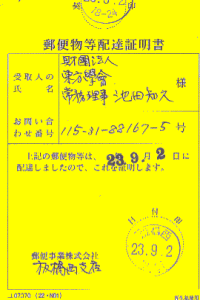 契印
郵便物等配達証明書
受取人の氏名
財團法人
東方學會
常務理事 池田知久
様
お問い合わせ番号
115-31-22167-5 号
上記の郵便物等は、23.9.2 日に
配達しましたので、これを証明します。
日付印
23.9.2
郵便事業株式会社
板橋西支店